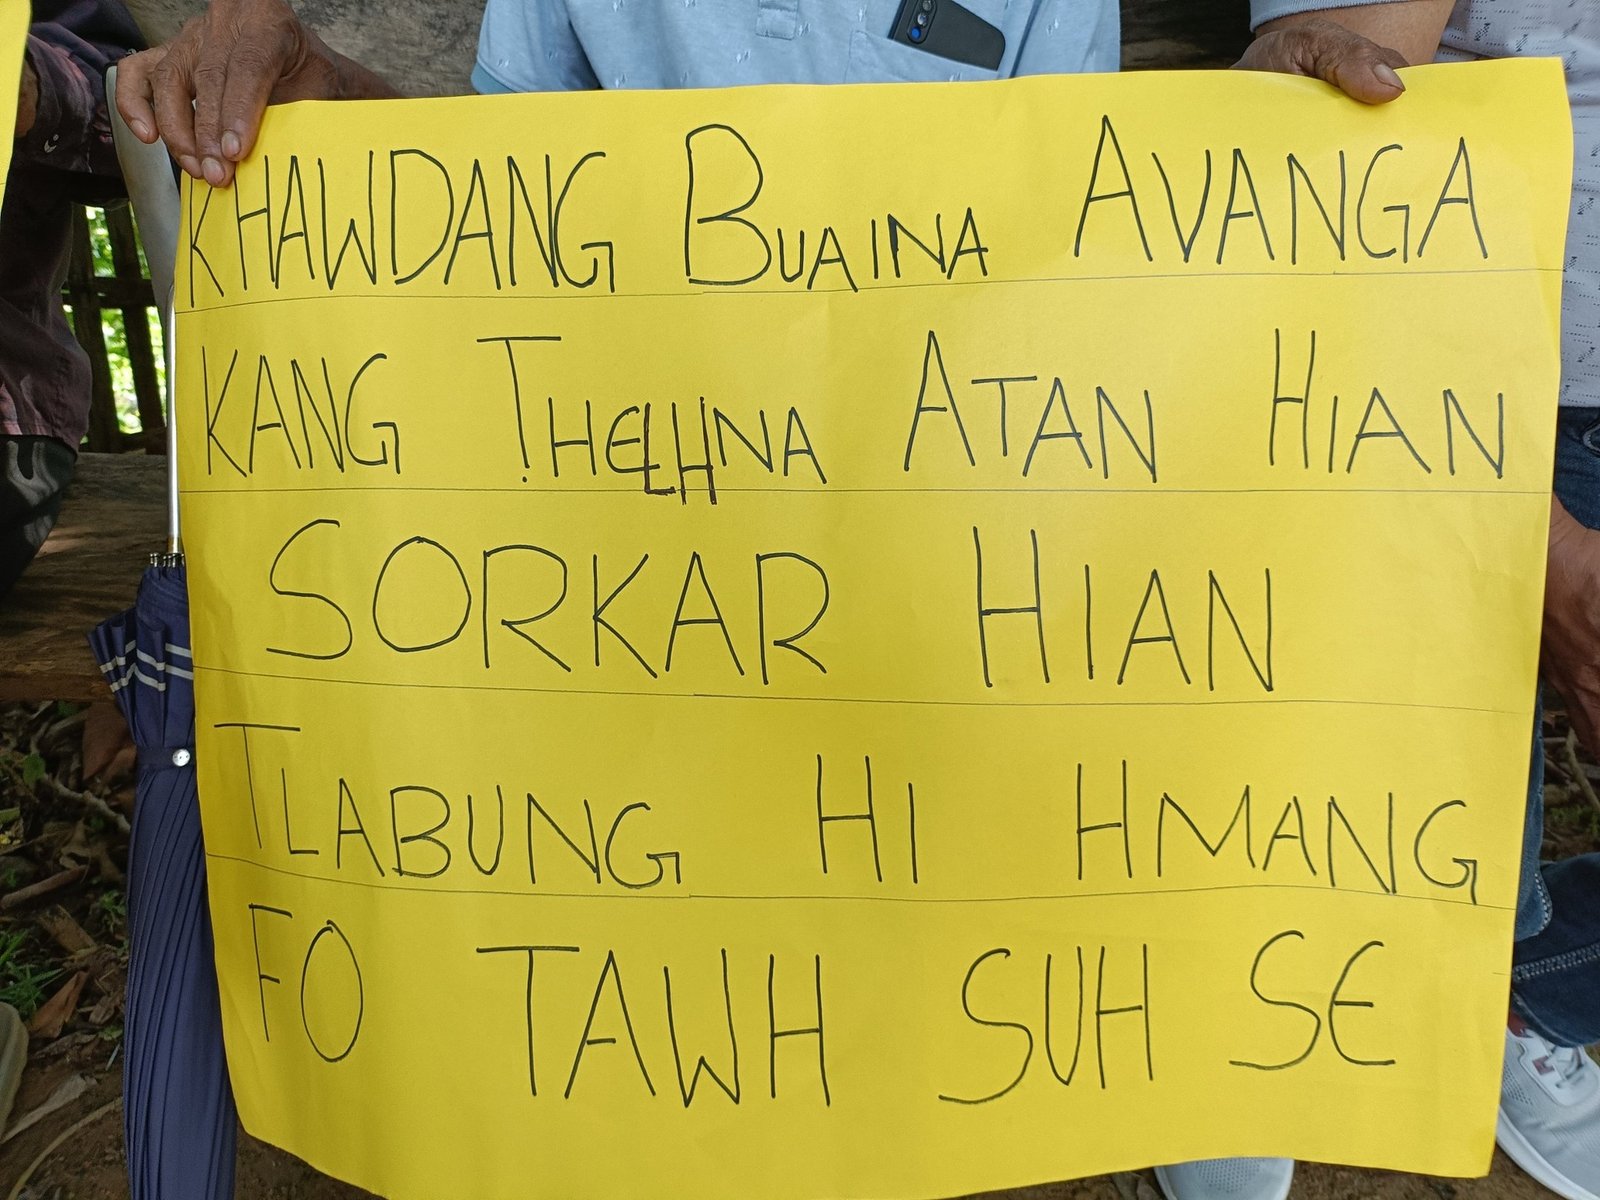 KHAWDANG BUAINA AVANGA
KANG ṬHELHNA ATAN HIAN
SORKAR HIAN
TLABUNG HI HMANG
FO TAWH SUH SE